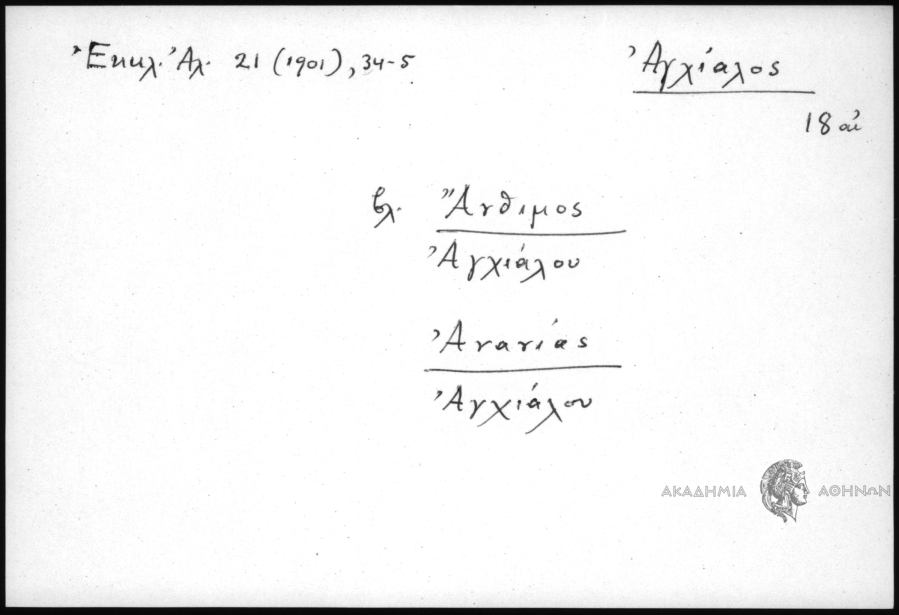 Ἐκκλ. Ἀλ. 21 (1901), 34-5
Ἀγχίαλος
18 αἰ
βλ. Ἄνθιμος
Ἀγχιάλου
Ἀνανίας
Ἀγχιάλου
ΑΚΑΔΗΜΙΑ ΑΘΗΝΩΝ